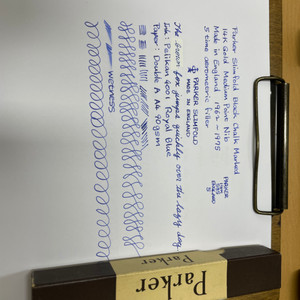 Parker Slimfold Black Chalk Marked
14K Gold Medium Point Nib
Made in England 1962 - 1975
5 time aerometric filler
PARKER
ENGLAND
5
PARKER SLIMFOLD
MADE IN ENGLAND
The brown fox jumps quickly over the lazy dog
Ink: Pelikan 4001 Royal Blue
Paper: Double A A4 90gsm
WETNESS
Parker
Parker